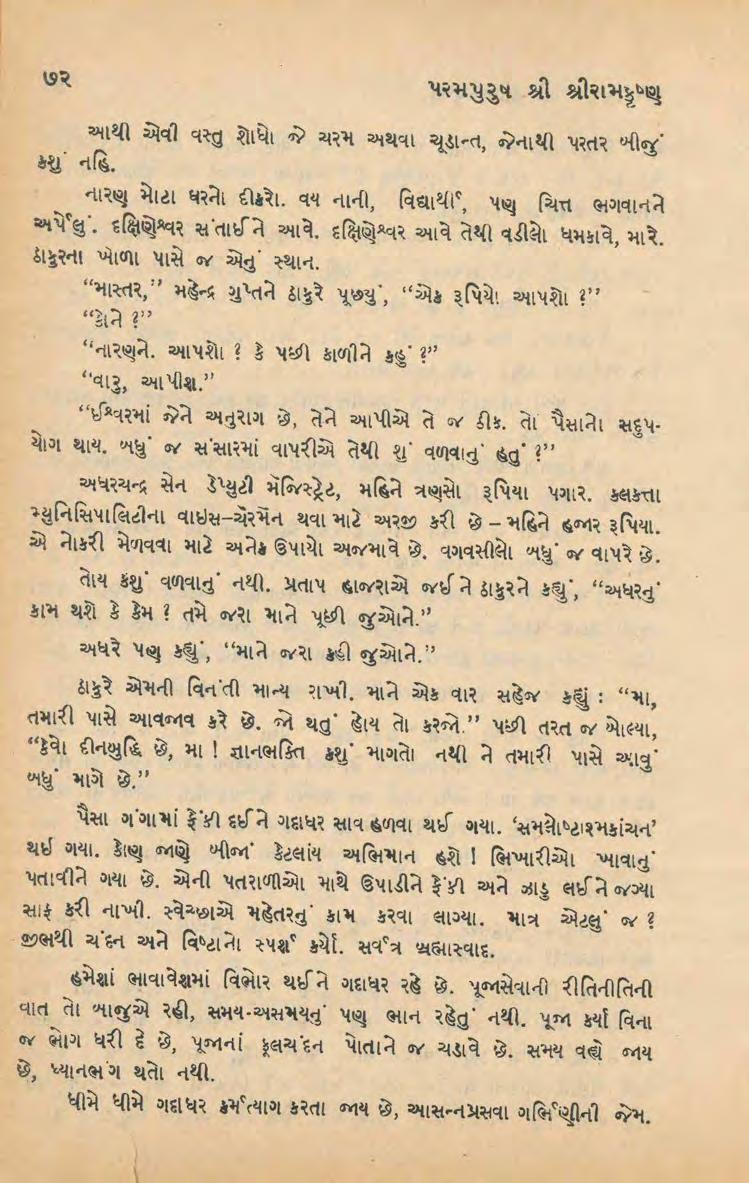 ૭૨
પરમપુરુષ શ્રી શ્રીરામકૃષ્ણ
આથી એવી વસ્તુ શોધો જે ચરમ અથવા ચૂડાન્ત, જેનાથી પરતર બીજું
કશું નહિ.
નારણ મોટા ઘરનો દીકરો. વય નાની, વિદ્યાર્થી, પણ ચિત્ત ભગવાનને
અર્પેલું. દક્ષિણેશ્વર સંતાઈને આવે. દક્ષિણેશ્વર આવે તેથી વડીલો ધમકાવે, મારે.
ઠાકુરના ખોળા પાસે જ એનું સ્થાન.
“માસ્તર,” મહેન્દ્ર ગુપ્તને ઠાકુરે પૂછ્યું, “એક રૂપિયો આપશો ?”
“કોને ?”
“નારણને. આપશો ? કે પછી કાળીને કહું ?”
“વારુ, આપીશ.”
“ઈશ્વરમાં જેને અનુરાગ છે, તેને આપીએ તે જ ઠીક. તો પૈસાનો સદુપ-
યોગ થાય. બધું જ સંસારમાં વાપરીએ તેથી શું વળવાનું હતું ?”
અધરચન્દ્ર સેન ડેપ્યુટી મૅજિસ્ટ્રેટ, મહિને ત્રણસો રૂપિયા પગાર. કલકત્તા
મ્યુનિસિપાલિટીના વાઇસ–ચૅરમૅન થવા માટે અરજી કરી છે – મહિને હજાર રૂપિયા.
એ નોકરી મેળવવા માટે અનેક ઉપાયો અજમાવે છે. વગવસીલો બધું જ વાપરે છે.
તોય કશું વળવાનું નથી. પ્રતાપ હાજરાએ જઈને ઠાકુરને કહ્યું, “અધરનું
કામ થશે કે કેમ ? તમે જરા માને પૂછી જુઓને.”
અધરે પણ કહ્યું, “માને જરા કહી જુઓને.”
ઠાકુરે એમની વિનંતી માન્ય રાખી. માને એક વાર સહેજ કહ્યું : “મા,
તમારી પાસે આવજાવ કરે છે. જો થતું હોય તો કરજો.” પછી તરત જ બોલ્યા,
“કેવો દીનબુદ્ધિ છે, મા ! જ્ઞાનભક્તિ કશું માગતો નથી ને તમારી પાસે આવું
બધું માગે છે.”
પૈસા ગંગામાં ફેંકી દઈને ગદાધર સાવ હળવા થઈ ગયા. ‘સમલોષ્ટાશ્મકાંચન’
થઈ ગયા. કોણ જાણે બીજાં કેટલાંય અભિમાન હશે ! ભિખારીઓ ખાવાનું
પતાવીને ગયા છે. એની પતરાળીઓ માથે ઉપાડીને ફેંકી અને ઝાડુ લઈને જગ્યા
સાફ કરી નાખી. સ્વેચ્છાએ મહેતરનું કામ કરવા લાગ્યા. માત્ર એટલું જ ?
જીભથી ચંદન અને વિષ્ટાનો સ્પર્શ કર્યો. સર્વત્ર બ્રહ્માસ્વાદ.
હમેશાં ભાવાવેશમાં વિભોર થઈને ગદાધર રહે છે. પૂજાસેવાની રીતિનીતિની
વાત તો બાજુએ રહી, સમય-અસમયનું પણ ભાન રહેતું નથી. પૂજા કર્યા વિના
જ ભોગ ધરી દે છે, પૂજાનાં ફૂલચંદન પોતાને જ ચડાવે છે. સમય વહ્યે જાય
છે, ધ્યાનભંગ થતો નથી.
ધીમે ધીમે ગદાધર કર્મત્યાગ કરતા જાય છે, આસન્નપ્રસવા ગર્ભિણીની જેમ.